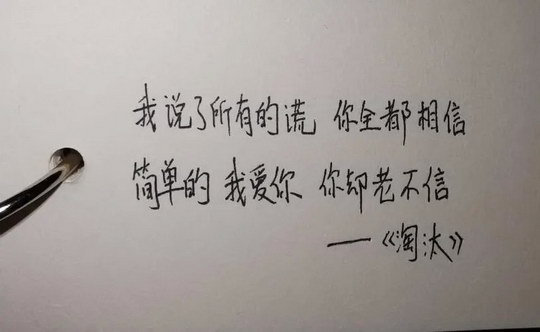 我说了所有的谎 你全都相信
简单的 我爱你 你却老不信
——《淘汰》